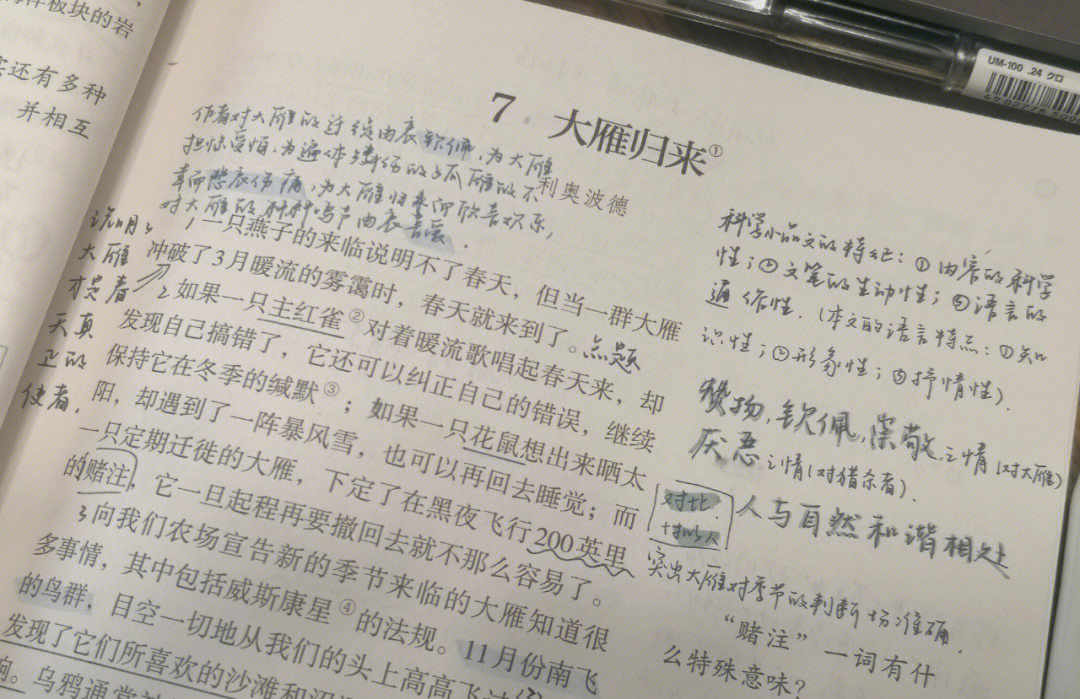 样板块的岩
还有多种
并相互
UM-100 .24 クロ
7 大雁归来①
利奥波德
作者对大雁的迁徙由衷钦佩,为大雁
担忧受怕,为遍体鳞伤的孤雁的不
幸而悲哀伤痛,为大雁归来而欣喜欢乐,
对大雁的种种鸣声由衷喜爱.
说明,
大雁
才是春
天真
正的
使者,
1一只燕子的来临说明不了春天,但当一群大雁
冲破了3月暖流的雾霭时,春天就来到了。点题
2如果一只主红雀②对着暖流歌唱起春天来,却
发现自己搞错了,它还可以纠正自己的错误,继续
保持它在冬季的缄默③;如果一只花鼠想出来晒太
阳,却遇到了一阵暴风雪,也可以再回去睡觉;而
一只定期迁徙的大雁,下定了在黑夜飞行200英里
的赌注,它一旦起程再要撤回去就不那么容易了。
3向我们农场宣告新的季节来临的大雁知道很
多事情,其中包括威斯康星④的法规。11月份南飞
的鸟群,目空一切地从我们的头上高高飞过
发现了它们所喜欢的沙滩和沼泽
响。乌鸦通常被
科学小品文的特征:①内容的科学
性;②文笔的生动性;③语言的
通俗性.(本文的语言特点:①知
识性;②形象性;③抒情性).
赞扬,钦佩,崇敬之情(对大雁)
厌恶之情(对猎杀者).
对比.
+拟人
人与自然和谐相处
突出大雁对季节的判断均准确.
“赌注”一词有什
么特殊意味?